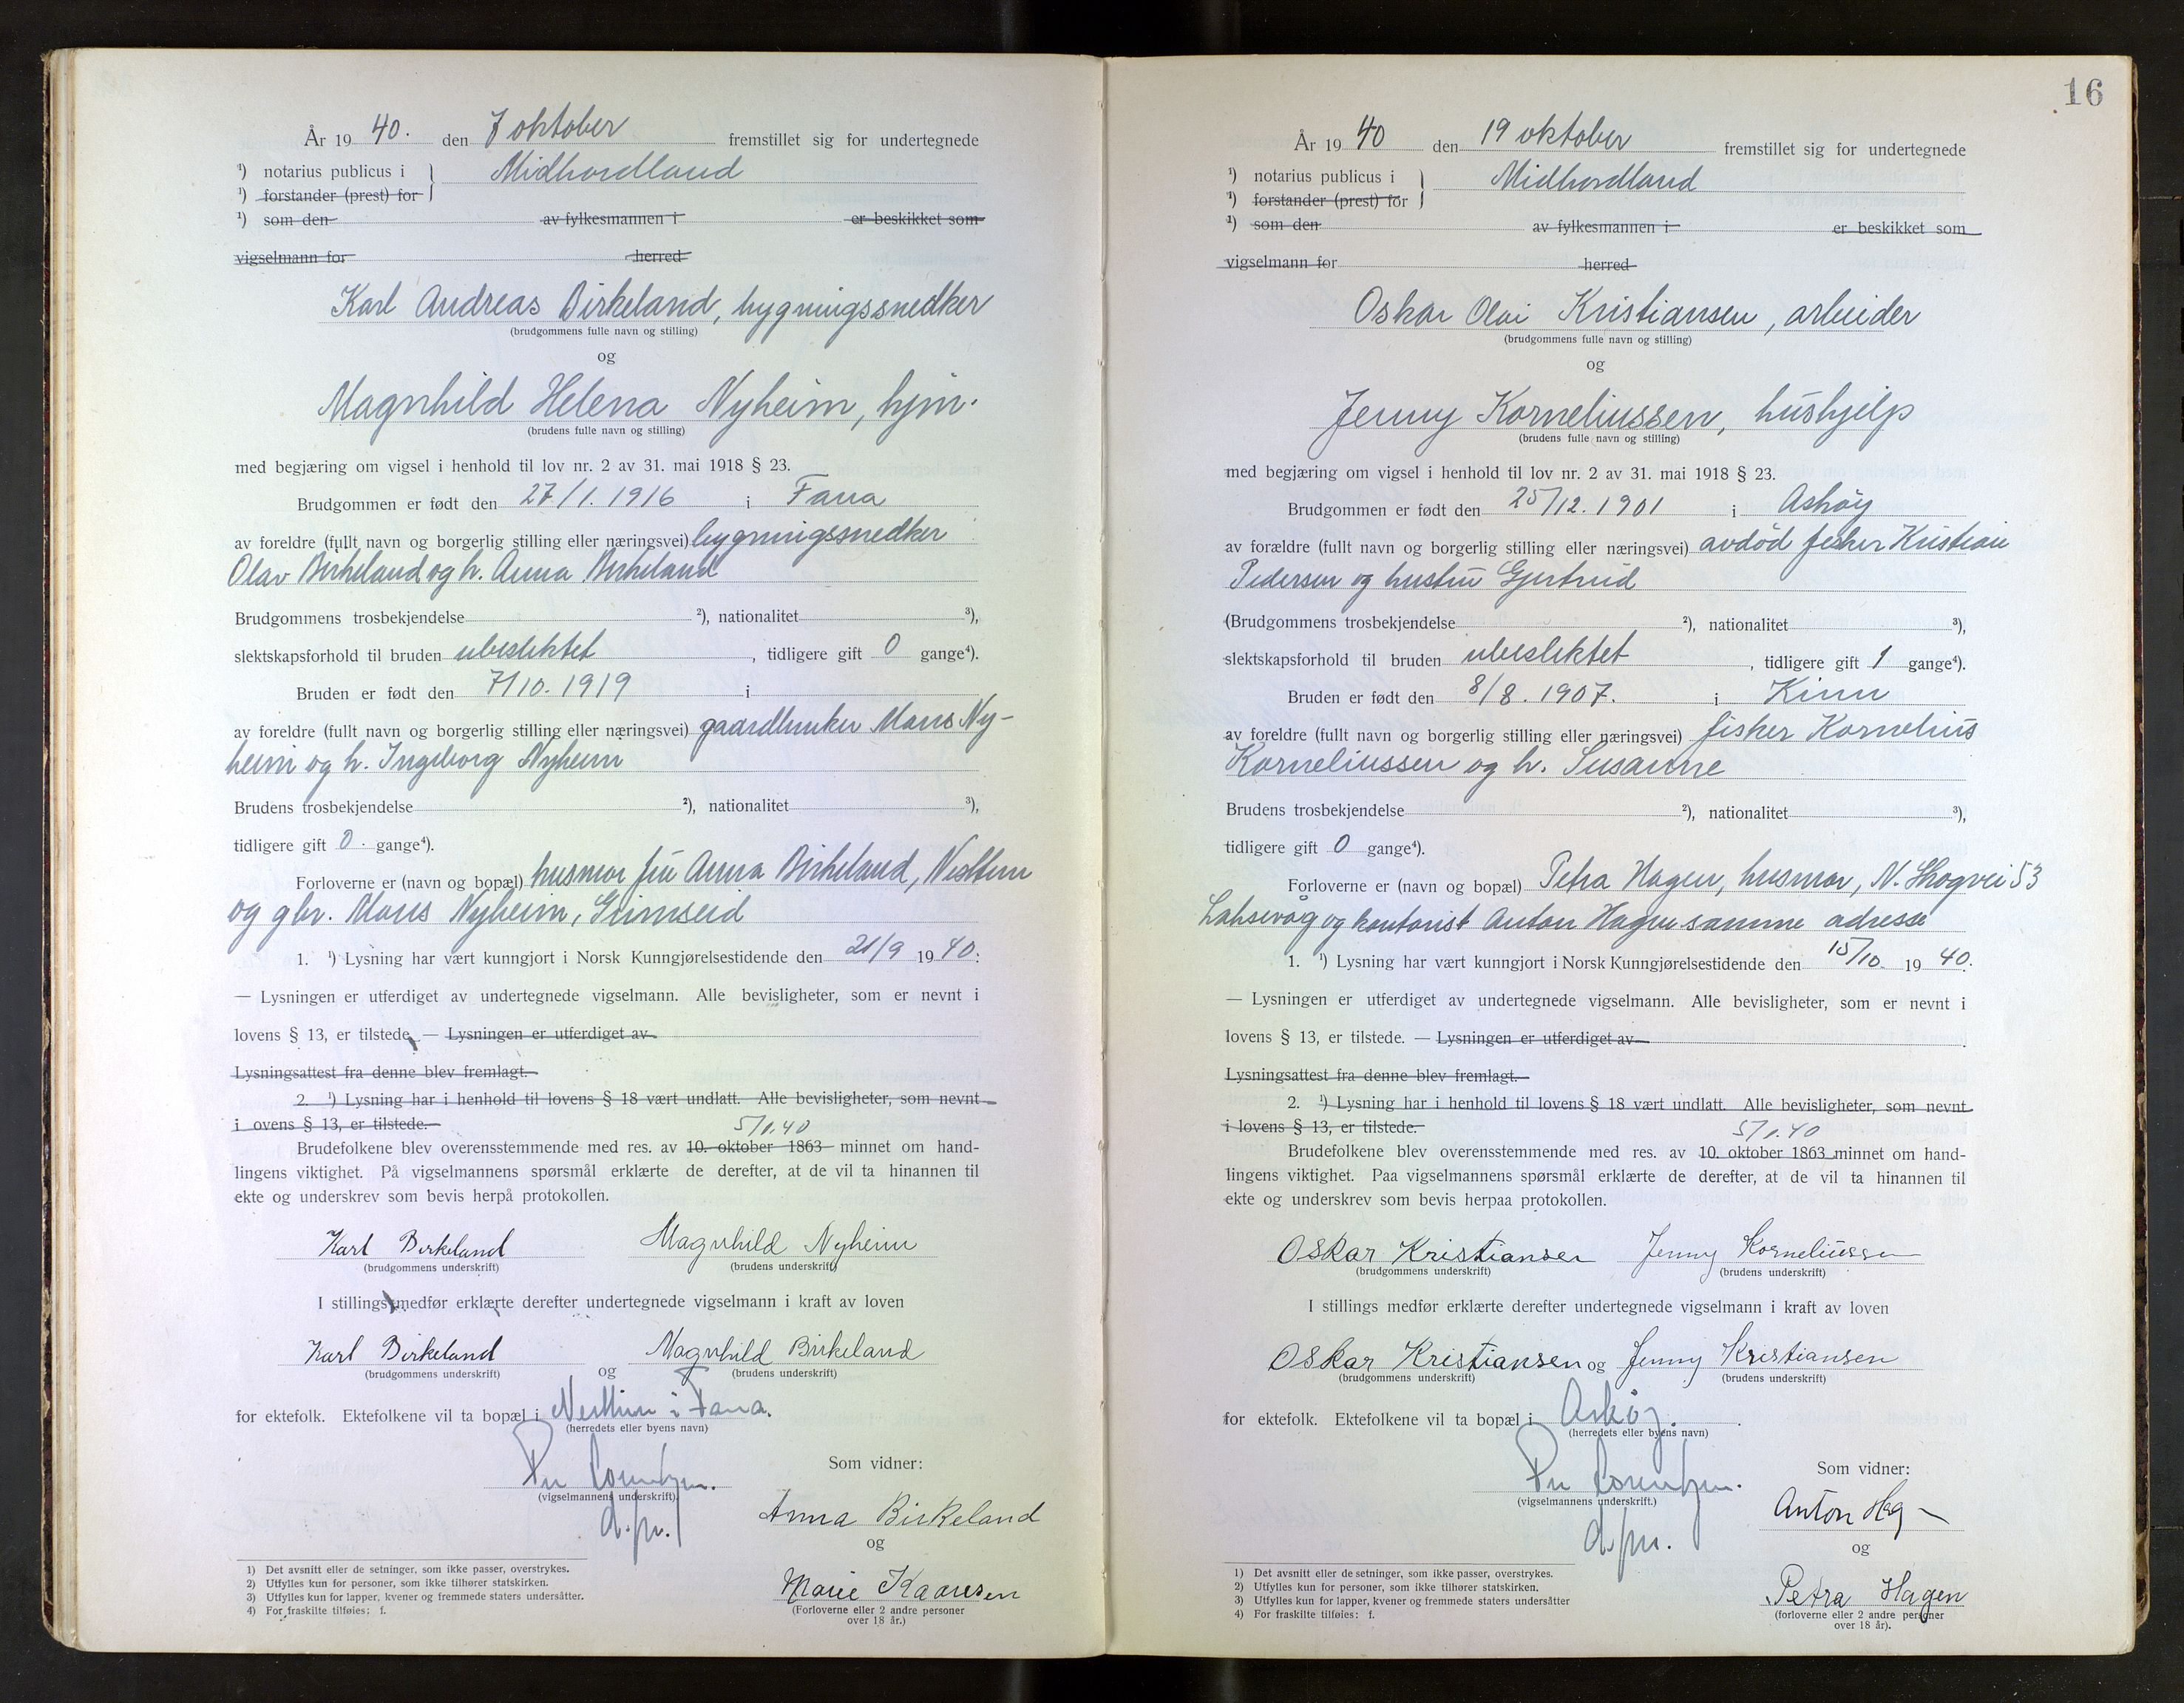 År 19 40. den 7 oktober fremstillet sig for undertegnede
¹) notarius publicus i } Midhordland
¹) forstander (prest) for
¹) som den av fylkesmannen i er beskikket som
vigselmann for herred
Karl Andreas Birkeland, bygningssnedker
(brudgommens fulle navn og stilling)
og
Magnhild Helena Nyheim, hjm.
(brudens fulle navn og stilling)
med begjæring om vigsel i henhold til lov nr. 2 av 31. mai 1918 § 23.
Brudgommen er født den 27/1. 1916 i Fana
av foreldre (fullt navn og borgerlig stilling eller næringsvei) bygningssnedker
Olav Birkeland og h. Anna Birkeland
Brudgommens trosbekjendelse ²), nationalitet ³),
slektskapsforhold til bruden ubeslektet, tidligere gift 0 gange⁴).
Bruden er født den 7/10. 1919 i
av foreldre (fullt navn og borgerlig stilling eller næringsvei) gaardbruker Mons Ny-
heim og h. Ingeborg Nyheim
Brudens trosbekjendelse ²), nationalitet ³),
tidligere gift 0 . gange⁴).
Forloverne er (navn og bopæl) husmor fru Anna Birkeland, Nesttun
og gbr. Mons Nyheim, Grimseid
1. ¹) Lysning har vært kunngjort i Norsk Kunngjørelsestidende den 21/9 19 40:
— Lysningen er utferdiget av undertegnede vigselmann. Alle bevisligheter, som er nevnt i
lovens § 13, er tilstede. — Lysningen er utferdiget av
Lysningsattest fra denne blev fremlagt.
2. ¹) Lysning har i henhold til lovens § 18 vært undlatt. Alle bevisligheter, som nevnt
i ovens § 13, er tilstede.
5/1.40
Brudefolkene blev overensstemmende med res. av 10. oktober 1863 minnet om hand-
lingens viktighet. På vigselmannens spørsmål erklærte de derefter, at de vil ta hinannen til
ekte og underskrev som bevis herpå protokollen.
Karl Birkeland Magnhild Nyheim
(brudgommens underskrift) (brudens underskrift)
I stillings medfør erklærte derefter undertegnede vigselmann i kraft av loven
Karl Birkeland og Magnhild Birkeland
(brudgommens underskrift) (brudens underskrift)
for ektefolk. Ektefolkene vil ta bopæl i Nesttun i Fana.
(herredets eller byens navn)
(vigselmannens underskrift)
Som vidner:
Anna Birkeland
og
Marie
(Forloverne eller 2 andre personer
over 18 år.)
1) Det avsnitt eller de setninger, som ikke passer, overstrykes.
2) Utfylles kun for personer, som ikke tilhører statskirken.
3) Utfylles kun for lapper, kvener og fremmede staters undersåtter.
4) For fraskilte tilføies: f.
16
År 19 40 den 19 oktober fremstillet sig for undertegnede
¹) notarius publicus i } Midhordland
¹) forstander (prest) for
¹) som den av fylkesmannen i er beskikket som
vigselmann for herred
Oskar Olai Kristiansen, arbeider
(brudgommens fulle navn og stilling)
og
Jenny Korneliussen, hushjelp
(brudens fulle navn og stilling)
med begjæring om vigsel i henhold til lov nr. 2 av 31. mai 1918 § 23.
Brudgommen er født den 25/12. 1901 i Askøy
av forældre (fullt navn og borgerlig stilling eller næringsvei) avdød fisker Kristian
Pedersen og hustru Gjertrud
(Brudgommens trosbekjendelse ²), nationalitet ³),
slektskapsforhold til bruden ubeslektet, tidligere gift 1 gange⁴).
Bruden er født den 8/8. 1907. i Kinn
av foreldre (fullt navn og borgerlig stilling eller næringsvei) fisker Kornelius
Korneliussen og h. Susanne
Brudens trosbekjendelse ²), nationalitet ³),
tidligere gift 0 gange⁴).
Forloverne er (navn og bopæl) Petra Hagen, husmor, N. Skogvei 53
Laksevåg og kontorist Anton Hagen samme adresse
1. ¹) Lysning har vært kunngjort i Norsk Kunngjørelsestidende den 15/10. 19 40.
— Lysningen er utferdiget av undertegnede vigselmann. Alle bevisligheter, som er nevnt i
lovens § 13, er tilstede. — Lysningen er utferdiget av
Lysningsattest fra denne blev fremlagt.
2. ¹) Lysning har i henhold til lovens § 18 vært undlatt. Alle bevisligheter, som nevnt
i lovens § 13, er tilstede.
5/1.40
Brudefolkene blev overensstemmende med res. av 10. oktober 1863 minnet om hand-
lingens viktighet. Paa vigselmannens spørsmål erklærte de derefter, at de vil ta hinannen til
ekte og underskrev som bevis herpaa protokollen.
Oskar Kristiansen Jenny Korneliussen
(brudgommens underskrift) (brudens underskrift)
I stillings medfør erklærte derefter undertegnede vigselmann i kraft av loven
Oskar Kristiansen og Jenny Kristiansen
(brudgommens underskrift) (brudens underskrift)
for ektefolk. Ektefolkene vil ta bopæl i Askøy.
(herredets eller byens navn)
(vigselmannens underskrift.)
Som vidner:
Anton Hag
og
Petra Hagen
(forloverne eller 2 andre personer
over 18 år).
1) Det avsnitt eller de setninger, som ikke passer, overstrykes.
2) Utfylles kun for personer, som ikke tilhører statskirken.
3) Utfylles kun for lapper, kvener og fremmede staters undersåtter
4) For fraskilte tilføies: f.